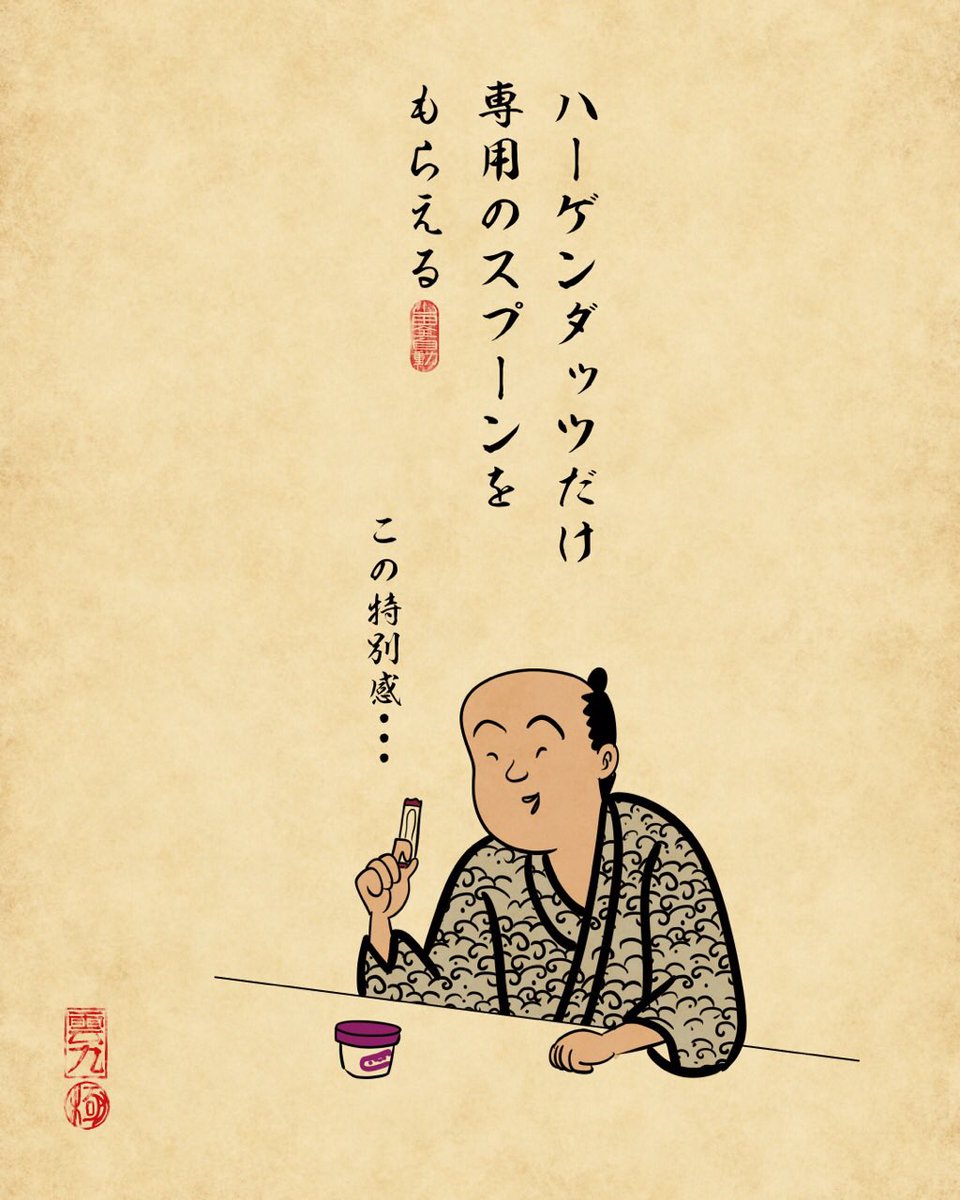 ハーゲンダッツだけ
専用のスプーンを
もらえる
この特別感…